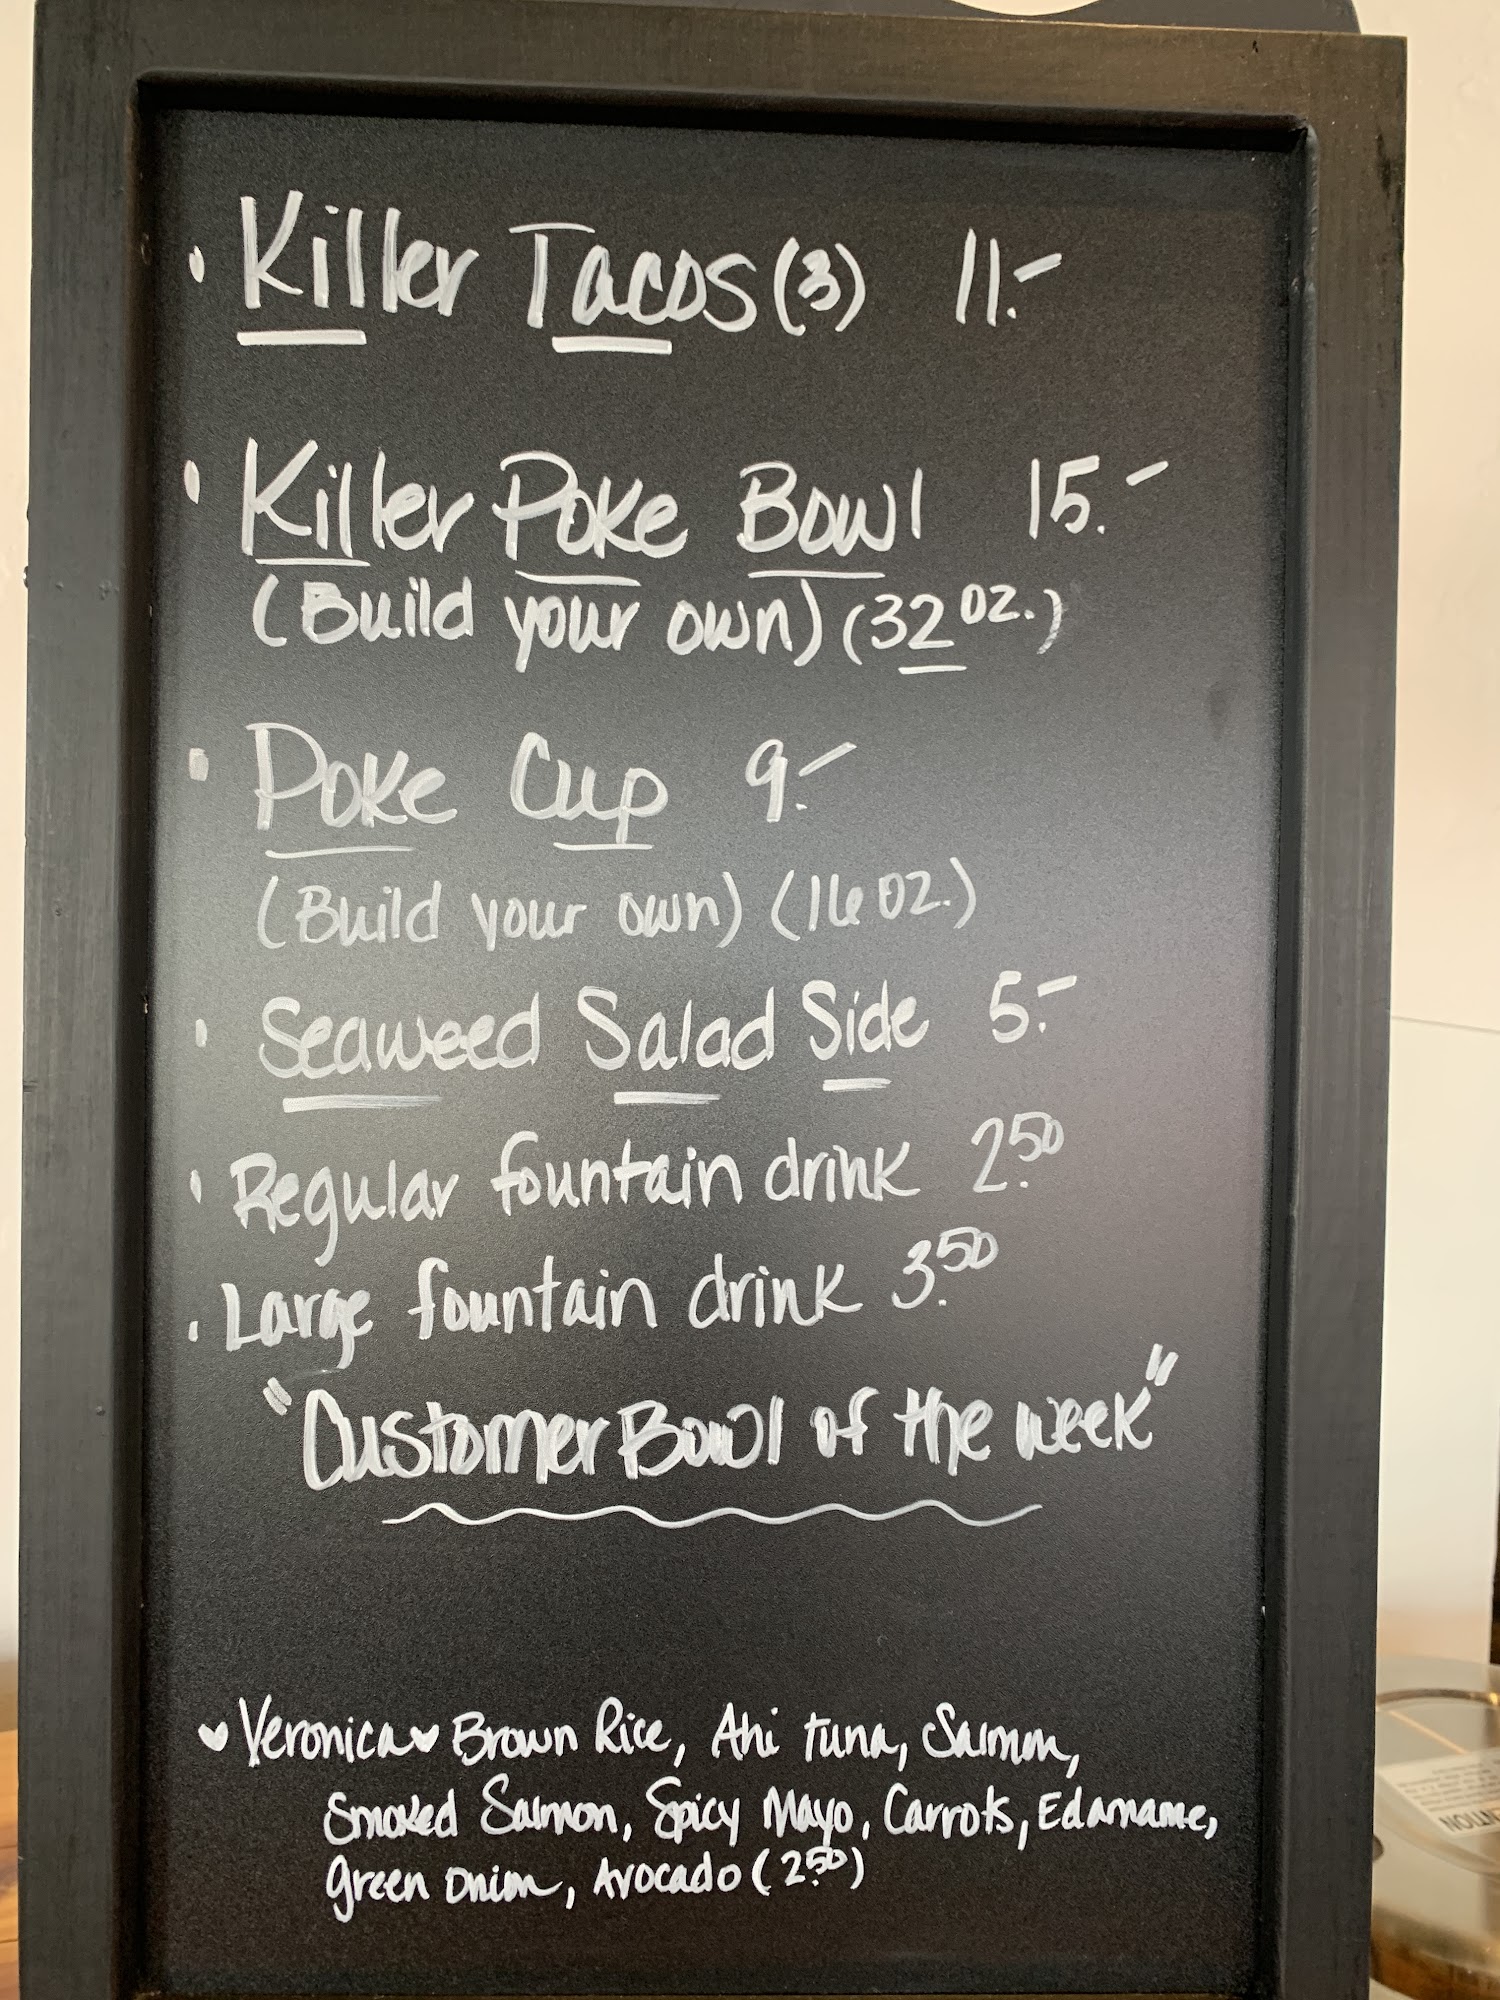 • Killer Tacos (3) 11.-
• Killer Poke Bowl 15.-
(Build your own) (32 oz.)
• Poke Cup 9.-
(Build your own) (16 oz.)
• Seaweed Salad Side 5.-
• Regular fountain drink 2.50
• Large fountain drink 3.50
"Customer Bowl of the week"
♥ Veronica ♥ Brown Rice, Ahi tuna, Salmon,
Smoked Salmon, Spicy Mayo, Carrots, Edamame,
green onion, Avocado (2.50)